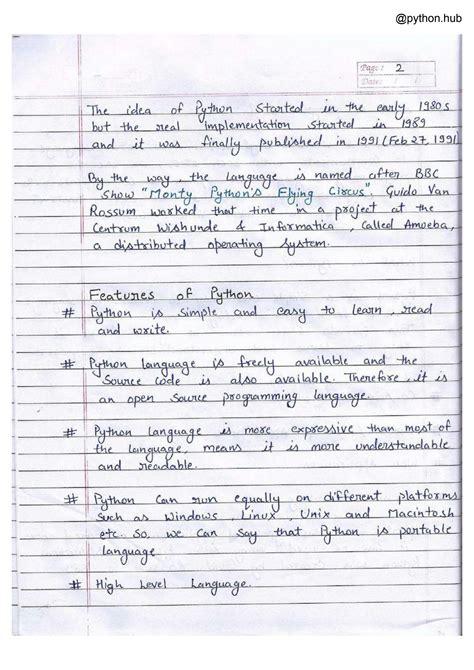 @python.hub
Page: 2
Date:
The idea of Python Started in the early 1980s
but the real implementation Started in 1989
and it was finally published in 1991 (Feb 27, 1991
By the way, the language is named after BBC
Show "Monty Python's Flying Circus". Guido Van
Rossum worked that time in a project at the
Centrum Wishunde & Informatica, called Amoeba,
a distributed operating System.
Features of Python
# Python is simple and easy to learn, read
and write.
# Python language is freely available and the
Source code is also available. Therefore, it is
an open Source programming language.
# Python language is more expressive than most of
the language, means it is more understandable
and readable.
# Python Can run equally on different platforms
such as Windows, Linux, Unix and Macintosh
etc. So, we can say that Python is portable
language
# High Level Language.